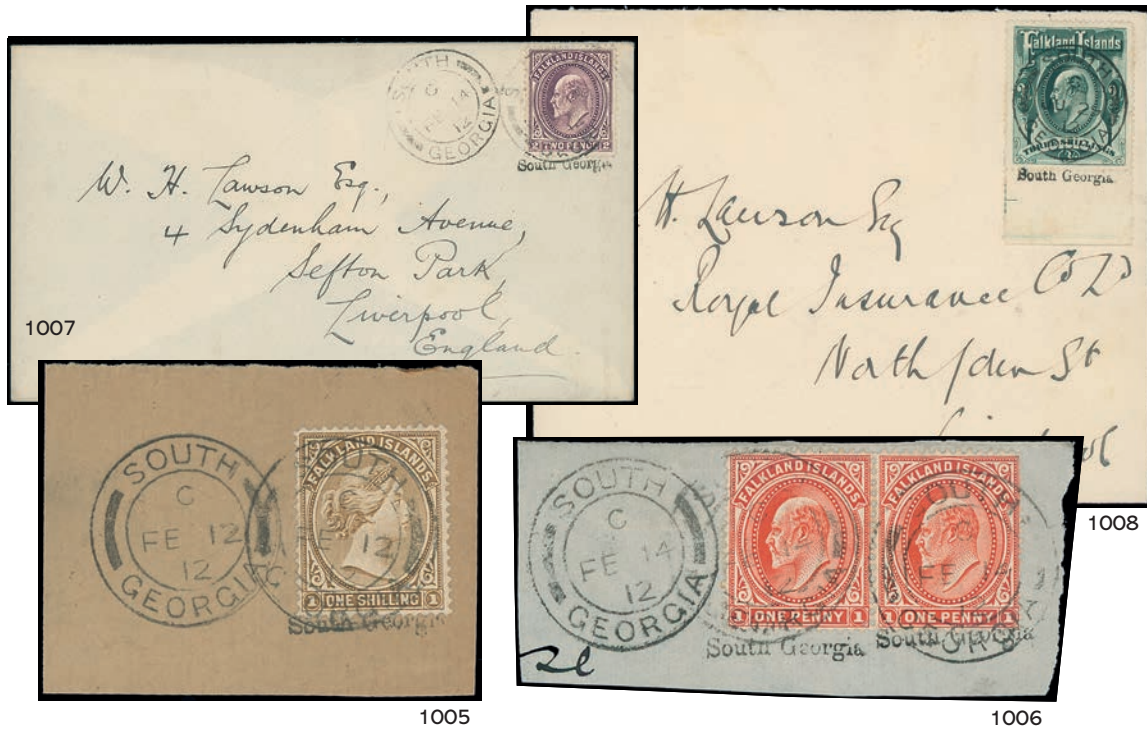 SOUTH
GEORGIA
C
FE 14
12
FALKLAND ISLANDS
2 TWO PENCE 2
South Georgia
W. H. Lawson Esq.,
4 Sydenham Avenue,
Sefton Park,
Liverpool,
England.
1007
Falkland Islands
SOUTH
GEORGIA
THREE SHILLINGS
South Georgia
H. Lawson Esq
Royal Insurance Co Ld
North John St
1008
SOUTH
GEORGIA
C
FE 12
12
SOUTH
FE 12
FALKLAND ISLANDS
1 ONE SHILLING 1
South Georgia
1005
SOUTH
GEORGIA
C
FE 14
12
FALKLAND ISLANDS
1 ONE PENNY 1
South Georgia
FALKLAND ISLANDS
1 ONE PENNY 1
South Georgia
1006